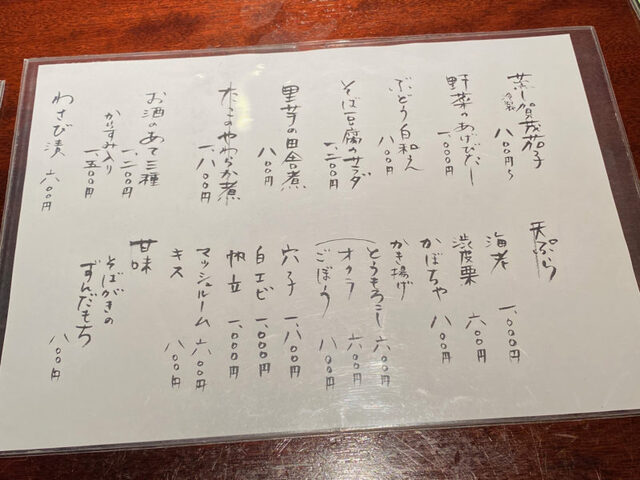 蒸し賀茂茄子 八〇〇円〜
野菜のあげびたし 一、〇〇〇円
ぶどう白和え 八〇〇円
そば豆腐のサラダ 一、二〇〇円
里芋の田舎煮 八〇〇円
たこのやわらか煮 一、八〇〇円
お酒のあて三種 一、二〇〇円
からすみ入り 一、五〇〇円
わさび漬 六〇〇円
天ぷら
海老 一、〇〇〇円
渋皮栗 六〇〇円
かぼちゃ 八〇〇円
かき揚げ
とうもろこし 六〇〇円
オクラ 六〇〇円
ごぼう 八〇〇円
穴子 一、八〇〇円
白エビ 一、〇〇〇円
帆立 一、〇〇〇円
マッシュルーム 六〇〇円
キス 八〇〇円
甘味
そばがきの
ずんだもち 八〇〇円